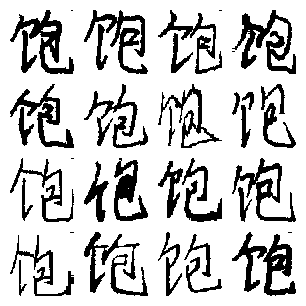 饱饱饱饱
饱饱饱饱
饱饱饱饱
饱饱饱饱